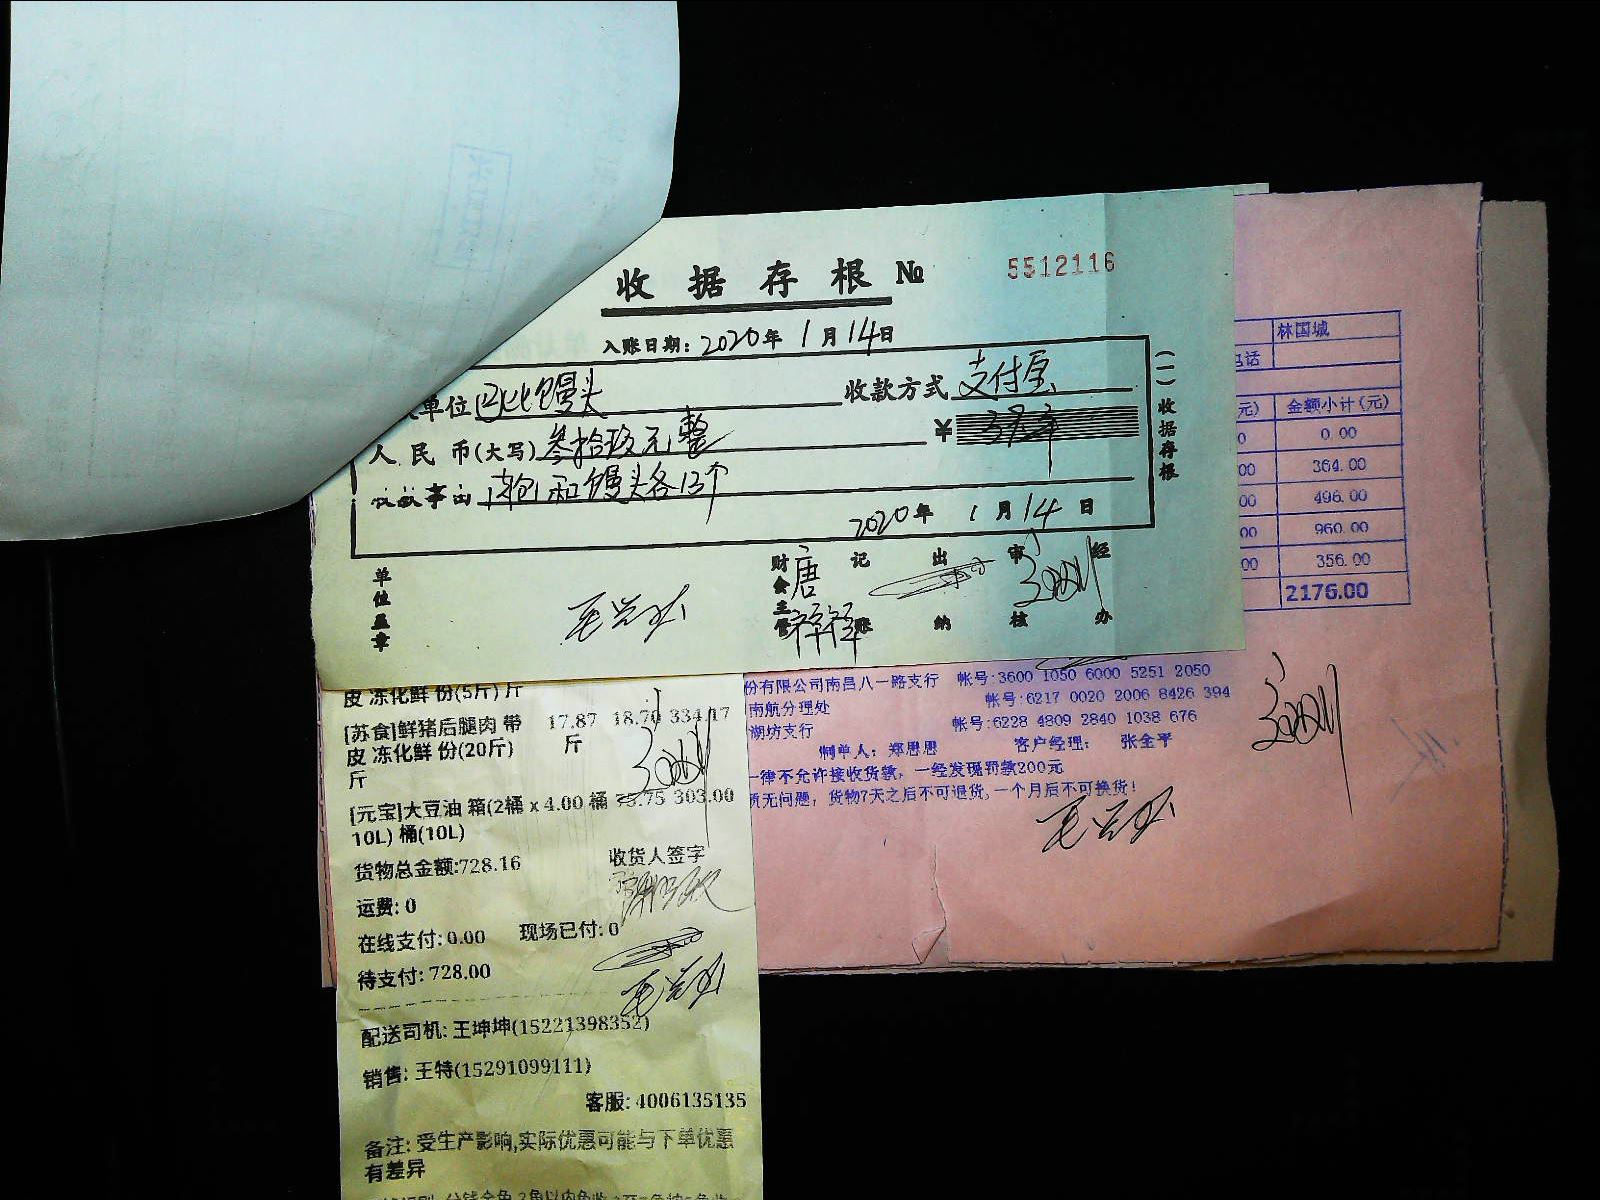 收据存根 № 5512116
入账日期: 2020年 1月 14日
单位 巴比馒头 收款方式 支付宝
人民币(大写) 叁拾玖元整 ¥
事由 肉包和馒头各13个
2020年 1月 14日
(一)收据存根
单位盖章
财会主管 唐祥祥
记账
出纳
审核
经办
林国城
电话
元) 金额小计(元)
0 0.00
00 364.00
00 496.00
00 960.00
00 356.00
2176.00
份有限公司南昌八一路支行 帐号:3600 1050 6000 5251 2050
南航分理处 帐号:6217 0020 2006 8426 394
湖坊支行 帐号:6228 4809 2840 1038 676
制单人: 郑思思 客户经理: 张全平
一律不允许接收货款, 一经发现罚款200元
质无问题, 货物7天之后不可退货, 一个月后不可换货!
皮 冻化鲜 份(5斤) 斤
[苏食]鲜猪后腿肉 带 17.87 18.70 334.17
皮 冻化鲜 份(20斤) 斤
斤
[元宝]大豆油 箱(2桶 x 4.00 桶 75.75 303.00
10L) 桶(10L)
货物总金额:728.16 收货人签字
运费: 0
在线支付: 0.00 现场已付: 0
待支付: 728.00
配送司机: 王坤坤(15221398352)
销售: 王特(15291099111)
客服: 4006135135
备注: 受生产影响,实际优惠可能与下单优惠
有差异